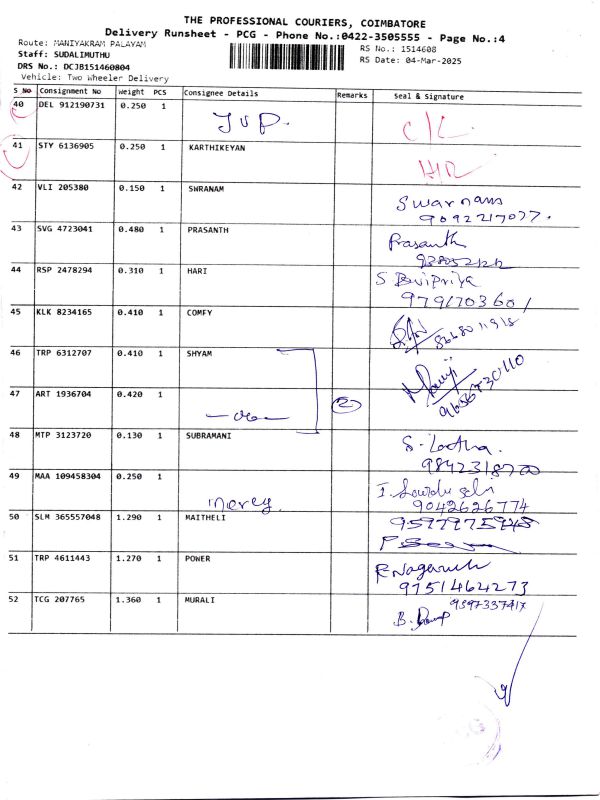 THE PROFESSIONAL COURIERS, COIMBATORE
Delivery Runsheet - PCG - Phone No.:0422-3505555 - Page No.:4
Route: MANIYAKRAM PALAYAM
RS No.: 1514608
Staff: SUDALIMUTHU
RS Date: 04-Mar-2025
DRS No.: DCJB151460804
Vehicle: Two Wheeler Delivery
S No Consignment No Weight PCS Consignee Details Remarks Seal & Signature
40 DEL 912190731 0.250 1 C/L
41 STY 6136905 0.250 1 KARTHIKEYAN
42 VLI 205380 0.150 1 SWRANAM Swarnam
9092217077.
43 SVG 4723041 0.480 1 PRASANTH Prasanth
44 RSP 2478294 0.310 1 HARI
9791703601
45 KLK 8234165 0.410 1 COMFY
46 TRP 6312707 0.410 1 SHYAM
9656730110
47 ART 1936704 0.420 1 2
48 MTP 3123720 0.130 1 SUBRAMANI
9842318700
49 MAA 109458304 0.250 1 mercy
9042626774
50 SLM 365557048 1.290 1 MAITHELI
51 TRP 4611443 1.270 1 POWER
9751464273
52 TCG 207765 1.360 1 MURALI